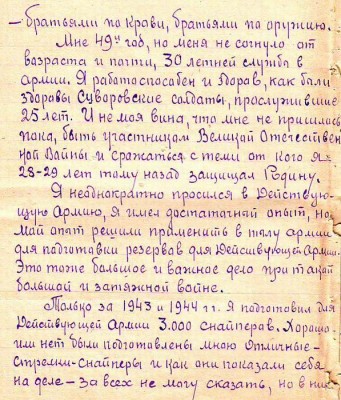 — братьями по крови, братьями по оружию.
Мне 49й год, но меня не согнуло от
возраста и почти, 30 летней служба в
армии. Я работоспособен и здоров, как были
здоровы Суворовские солдаты, прослужившие
25 лет. И не моя вина, что мне не пришлось
пока, быть участником Великой Отечествен
ной Войны и сражаться с теми от кого я -
28-29 лет тому назад защищал Родину.
Я неоднократно просился в Действую-
щую Армию, я имел достаточный опыт, но
мой опыт решили применить в тылу армии
для подготовки резервов для Действующей Армии.
Это тоже большое и важное дело при такой
большой и затяжной войне.
Только за 1943 и 1944 г.г. Я подготовил для
Действующей Армии 3.000 снайперов. Хорошо
или нет были подготовлены мною Отличные-
стрелки-снайперы и как они показали себя
на деле — За всех не могу сказать, но в них